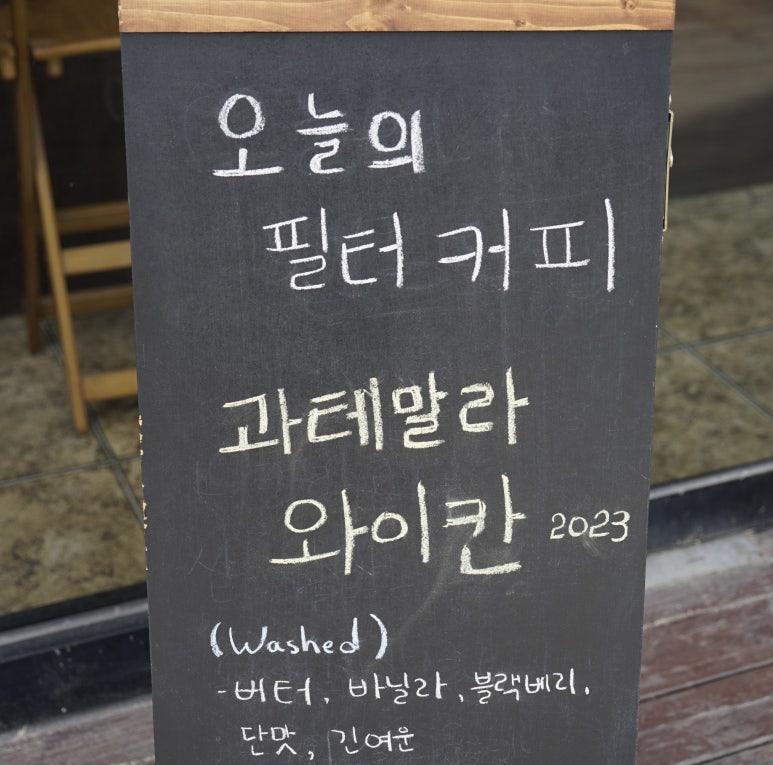 오늘의
필터 커피
과테말라
와이칸 2023
(Washed)
- 버터, 바닐라, 블랙베리,
단맛, 긴여운